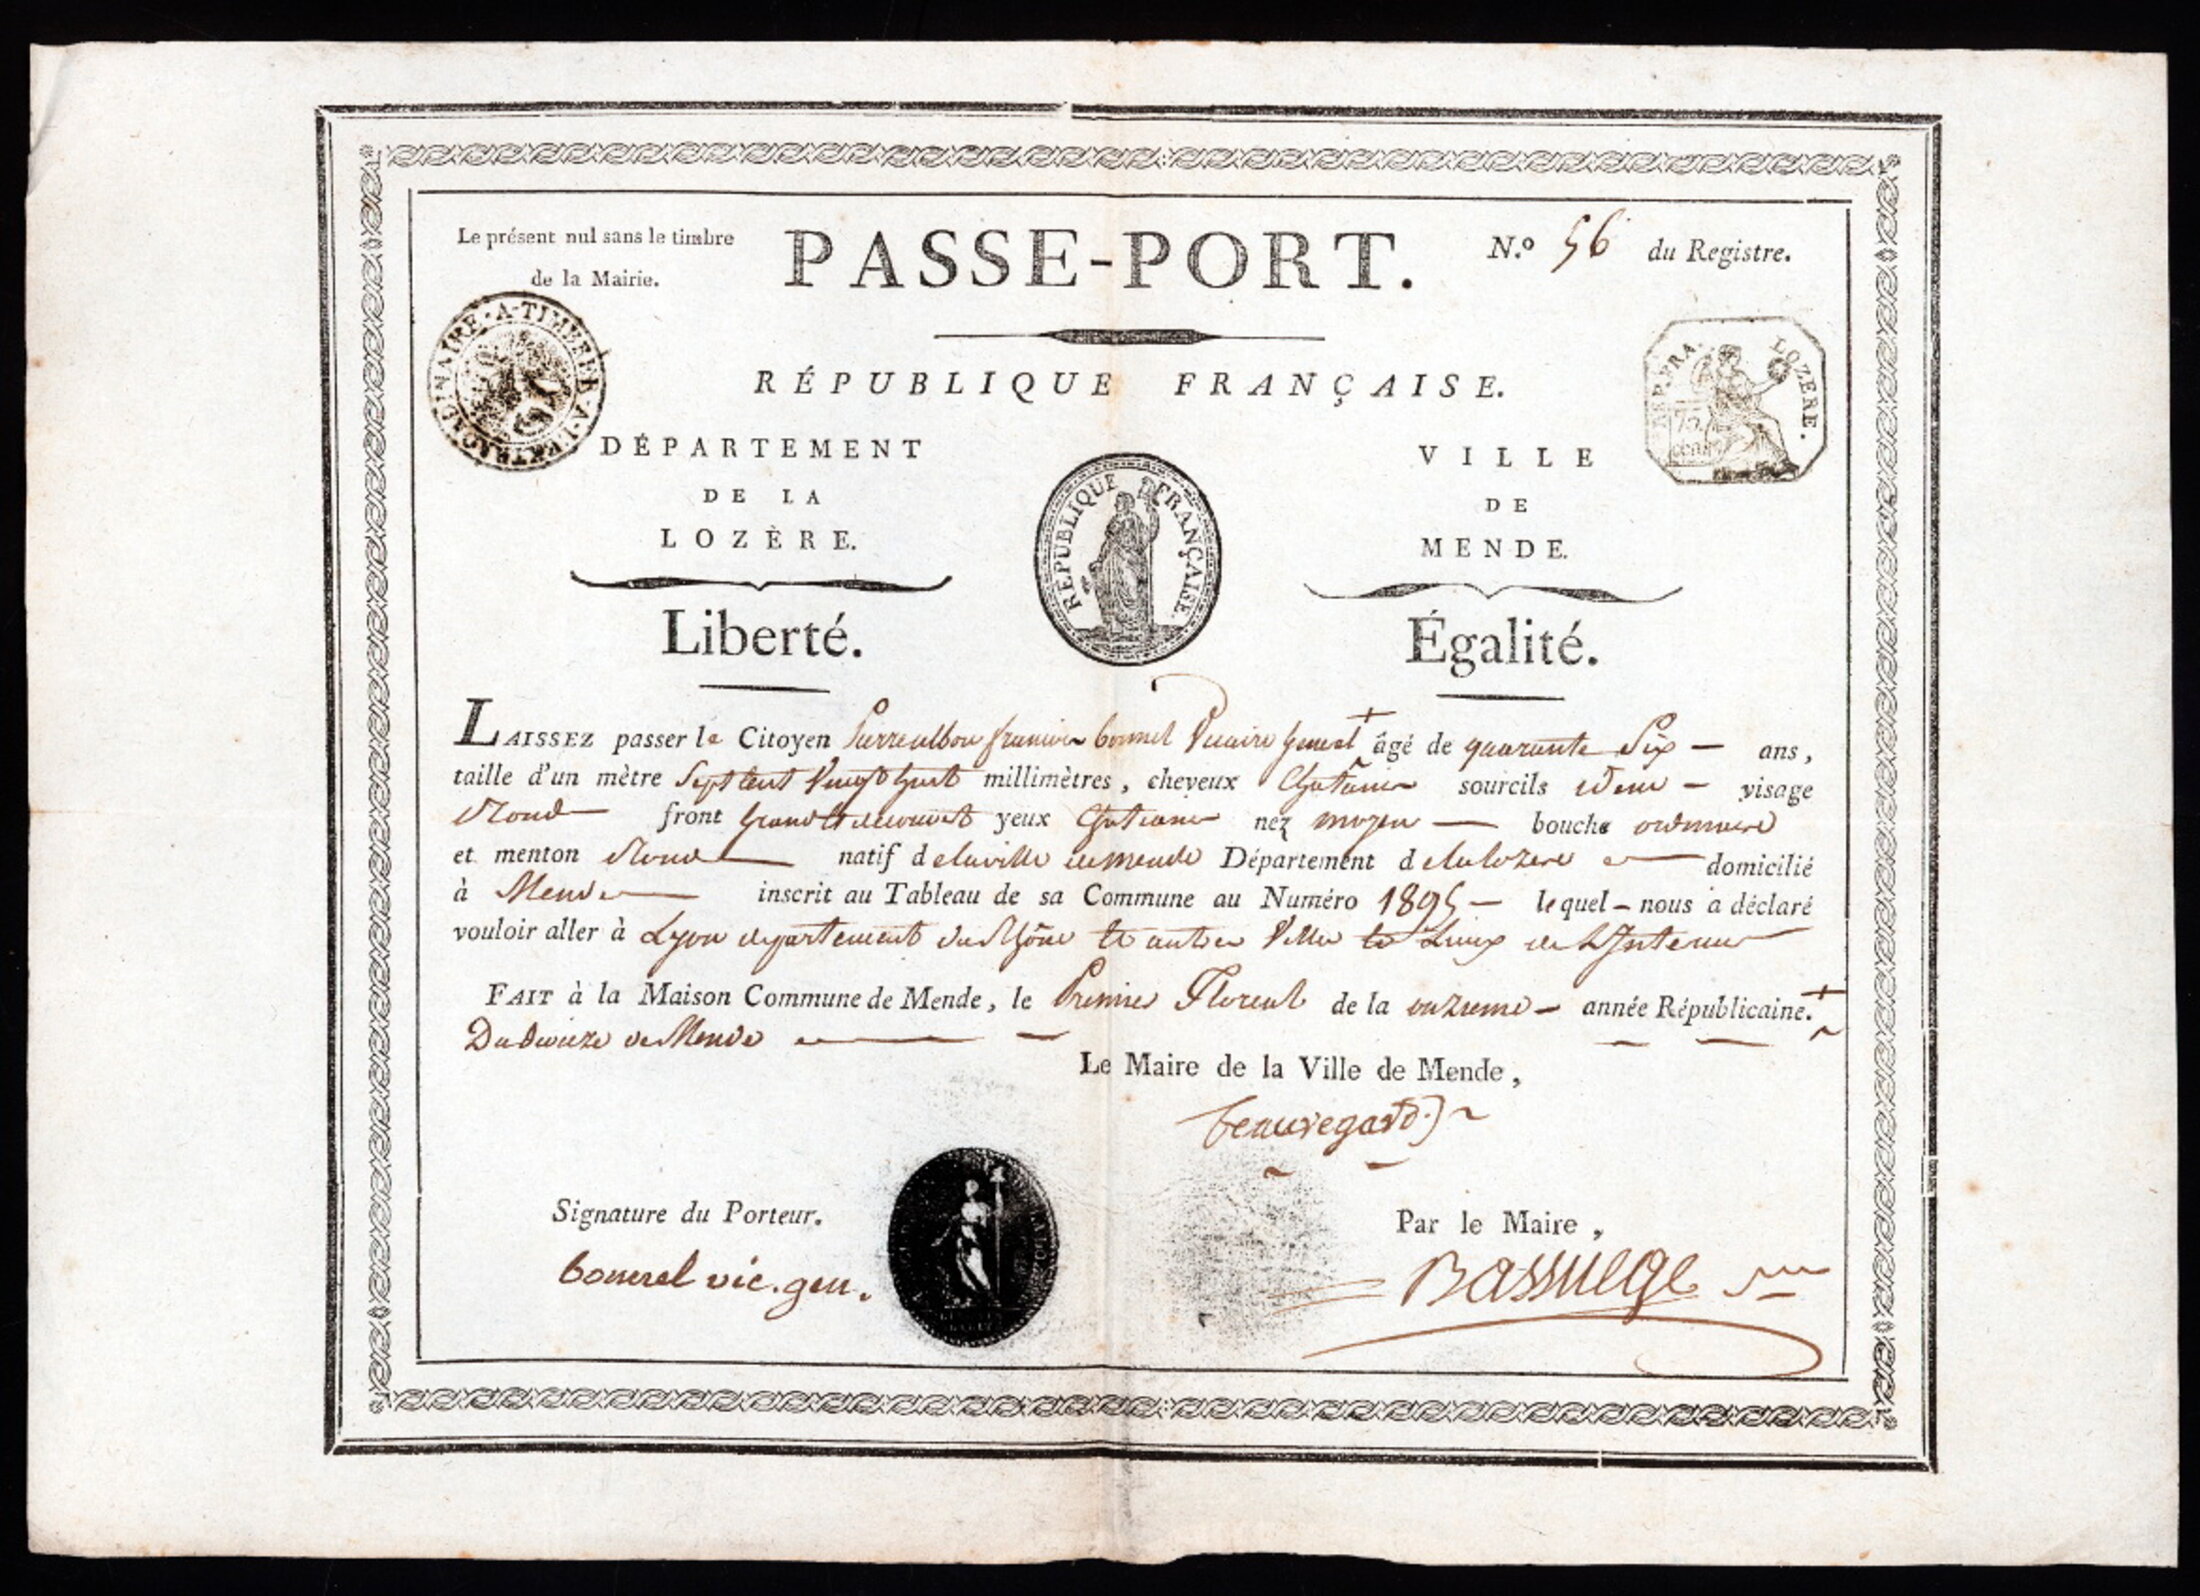 Le présent nul sans le timbre
de la Mairie.
PASSE-PORT.
N.º 56 du Registre.
EXTRAORDINAIRE · A · TIMBRER · A · L'
RÉPUBLIQUE FRANÇAISE.
REP. FRA. LOZERE.
75
cent
DÉPARTEMENT
DE LA
LOZÈRE.
RÉPUBLIQUE FRANÇAISE.
VILLE
DE
MENDE.
Liberté.
Égalité.
LAISSEZ passer le Citoyen bonnel Vicaire general âgé de quarante Six — ans,
taille d'un mètre Sept Cent Vingt huit millimètres, cheveux Chatains sourcils idem — visage
Rond — front Grand et decouvert yeux Chatains nez moyen — bouche ordinaire
et menton Rond — natif de la ville de mende Département de la lozere — domicilié
à Mende — inscrit au Tableau de sa Commune au Numéro 1895 — lequel — nous a déclaré
vouloir aller à Lyon departement du Rhône et autres Villes et Lieux de L'Interieur
FAIT à la Maison Commune de Mende, le Premier Floreal de la onzieme — année Républicaine.
Du de Mende
Le Maire de la Ville de Mende,
beauregard
Signature du Porteur.
bonnel vic. gen.
Par le Maire,